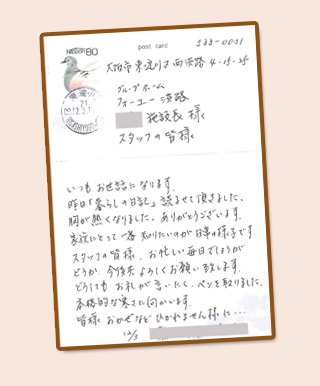 NIPPON 80
post card
533-0031
大阪市東淀川区西淡路4-15-25
グループホーム
フォーユー淡路
施設長様
スタッフの皆様
いつもお世話になります。
昨日「暮らしの日記」読ませて頂きました。
胸が熱くなりました。ありがとうございます。
家族にとって一番知りたいのが日常の様子です。
スタッフの皆様、お忙しい毎日でしょうが
どうか、今後共よろしくお願い致します。
どうしてもお礼が言いたく、ペンを取りました。
本格的な寒さに向かいます。
皆様おかぜなどひかれません様に…
12/3